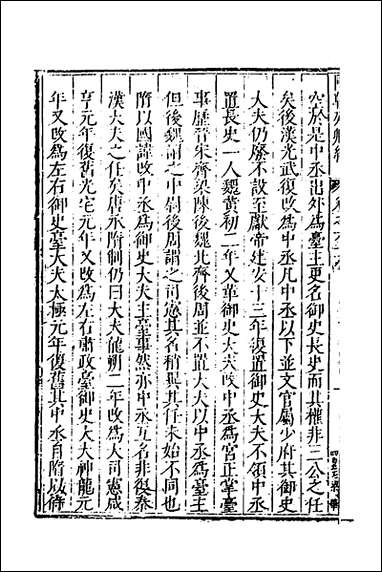 空於是中丞出外爲臺主更名御史長史而其權非三公之任
矣後漢光武復改爲中丞凡中丞以下並文官屬少府其御史
大夫仍廢不設至獻帝建安十三年復置御史大夫不領中丞
置長史一人魏黄初二年又革御史大夫改中丞爲宮正掌臺
事歷晉宋齊梁陳後魏北齊後周並不置大夫以中丞爲臺主
但後魏謂之中尉後周謂之司憲其名稍與其任未始不同也
隋以國諱改中丞爲御史大夫主臺事然亦中丞互名非復秦
漢大夫之任矣唐承隋制仍曰大夫龍朔二年改爲大司憲咸
亨元年復舊光宅元年又改爲左右肅政臺御史大夫神龍元
年又改爲左右御史臺大夫太極元年復舊其中丞自隋以待